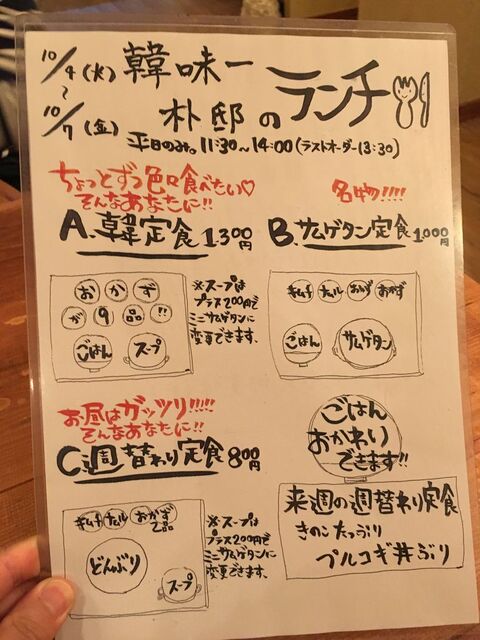 10/4(火)
～
10/7(金)
韓味一
朴邸のランチ
平日のみ。11:30～14:00(ラストオーダー13:30)
ちょっとずつ色々食べたい♡
そんなあなたに!!
A.韓定食 1,300円
おかず
が9品!!
ごはん スープ
※スープは
プラス200円で
ミニサムゲタンに
変更できます。
名物!!!!
B.サムゲタン定食 1,000円
キムチ ナムル おかず おかず
ごはん サムゲタン
お昼はガッツリ!!!!!
そんなあなたに!!
C.週替わり定食 800円
キムチ ナムル おかず2品
どんぶり
スープ
※スープは
プラス200円で
ミニサムゲタンに
変更できます。
ごはん
おかわり
できます!!
来週の週替わり定食
きのこたっぷり
プルコギ丼ぶり